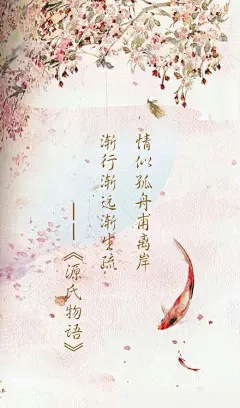 情似孤舟甫离岸
渐行渐远渐生疏
——《源氏物语》